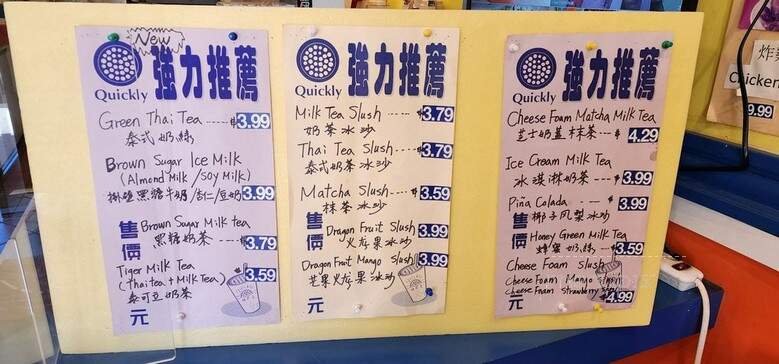 New
Quickly
強力推薦
Green Thai Tea ---- $3.99
泰式奶綠
Brown Sugar Ice Milk
(Almond Milk /Soy Milk)
掛碰黑糖牛奶/杏仁/豆奶 3.99
售價
Brown Sugar Milk tea
黑糖奶茶 ---- 3.79
Tiger Milk Tea
(Thai tea + Milk Tea) 3.59
泰可立奶茶
元
Quickly
強力推薦
Milk Tea Slush ---- $3.79
奶茶冰沙
Thai Tea Slush ---- $3.79
泰式奶茶冰沙
Matcha Slush ---- $3.59
抹茶冰沙
售價
Dragon Fruit Slush 3.99
火龙果冰沙
Dragon Fruit Mango Slush 3.99
芒果火龙果冰沙
元
Quickly
強力推薦
Cheese Foam Matcha Milk Tea
芝士奶蓋抹茶 --- $4.29
Ice Cream Milk Tea
冰琪淋奶茶 --- $3.99
Piña Colada ---- $3.99
椰子凤梨冰沙
售價
Honey Green Milk Tea
蜂蜜奶綠 --- $3.59
Cheese Foam Slush
Cheese Foam Mango Slush
Cheese Foam Strawberry
4.99
元
炸
Chicken